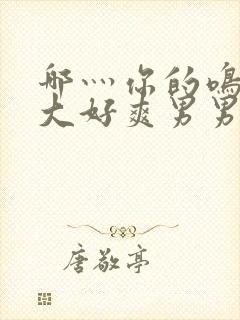 哪灬你的鳴
大好爽男男
唐敬亭